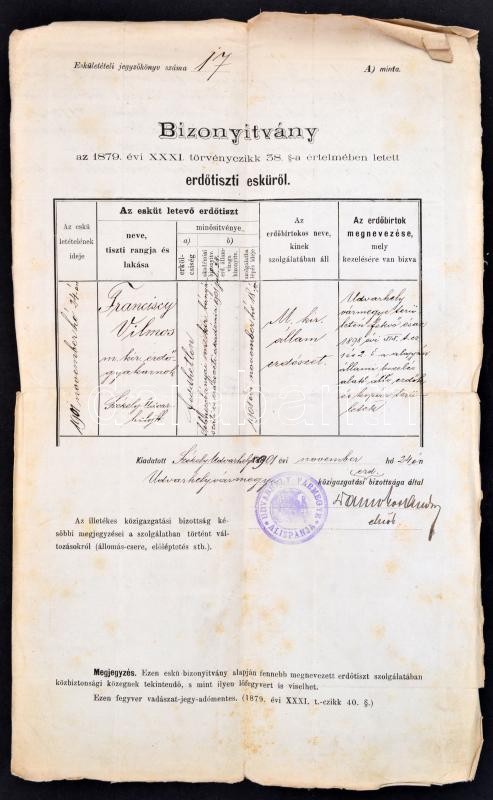 Eskületételi jegyzőkönyv száma 17
A) minta.
Bizonyitvány
az 1879. évi XXXI. törvényczikk 38. §-a értelmében letett
erdőtiszti esküről.
Az eskü
letételének
ideje
Az esküt letevő erdőtiszt
neve,
tiszti rangja és
lakása
minősítvénye
a)
b)
erkül-
csiség
Az
erdőbirtokos neve,
kinek
szolgálatában áll
Az erdőbirtok
megnevezése,
mely
kezelésére van bizva
1901 november hó
Franciscy
Vilmos
m. kir. erdő
gyakornok
Székely Udvar-
hely
fedhetlen
1901 évi november hó
M. kir.
állam
erdészet.
Udvarhely
vármegye terü
letén fekvő
1898 évi XIX. t. cz.
alapján
állami kezelés
alatt álló erdők
és kopár terü
letek
Kiadatott Székely Udvarhelyt 1901 évi november hó 24 én
Udvarhelyvármegye közigazgatási erd. bizottsága által
elnök
UDVARHELY VÁRMEGYE
ALISPÁNJA
Az illetékes közigazgatási bizottság ké-
sőbbi megjegyzései a szolgálatban történt vál-
tozásokról (állomás-csere, előléptetés stb.).
Megjegyzés. Ezen eskü-bizonyitvány alapján fennebb megnevezett erdőtiszt szolgálatában
közbiztonsági közegnek tekintendő, s mint ilyen lőfegyvert is viselhet.
Ezen fegyver vadászat-jegy-adómentes. (1879. évi XXXI. t.-czikk 40. §.)